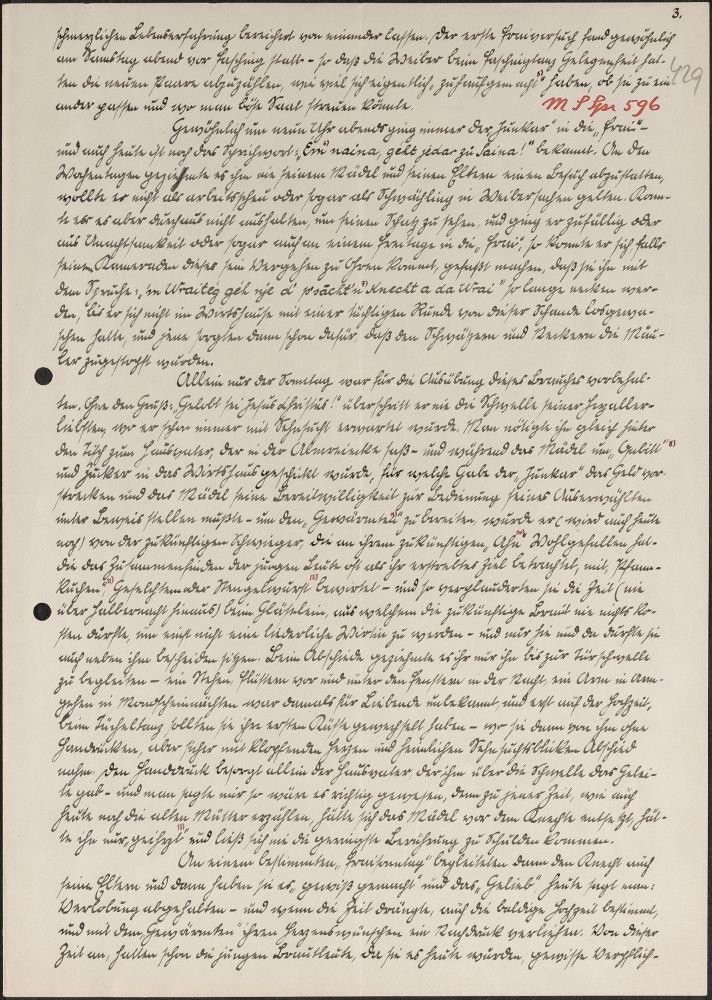 3.
schmerzlichen Lebenserfahrung bereichert von einander lassen. Der erste Freiversuch fand gewöhnlich
am Samstag abend vor Fasching statt - so daß die Weiber beim Faschingtanz Gelegenheit hat-
ten die neuen Paare abzuzählen, wie viel sich eigentlich "zuhaufgemacht" haben, ob sie zu ein-
429
ander passen und wo man böse Saat streuen könnte.
M S Spr 596
Gewöhnlich um neun Uhr abends ging immer der "Junkar" in die "Frai" -
und auch heute ist noch das Sprichwort: "Em naina, geht jedar zu saina!" bekannt. An den
Wochentagen geziehmte es ihm nie seinem Mädel und seinen Eltern einen Besuch abzustatten,
wollte er nicht als arbeitsscheu oder sogar als Schwächling in Weibersachen gelten. Konn-
te er es aber durchaus nicht aushalten, um seinen Schatz zu sehen, und ging er zufällig oder
aus Unachtsamkeit oder sogar auch an einem Freitage in die "Frai", so konnte er sich falls
seinen Kameraden dieses sein Vergehen zu Ohren kommt, gefaßt machen, daß sie ihn mit
dem Spruche: so lange necken wer-
den, bis er sich nicht im Wirtshause mit einer tüchtigen Runde von dieser Schande losgewa-
schen hatte, und jene sorgten dann schon dafür, daß den Schwätzern und Neckern die Mäu-
ler zugestopft wurden.
Allein nur der Sonntag war für die Ausübung dieses Brauches vorbehal-
ten. Ohne den Gruß: "Gelobt sei Jesus Christus!" überschritt er nie die Schwelle seiner Herzaller-
liebsten, wo er schon immer mit Sehnsucht erwartet wurde. Man nötigte ihn gleich hinter
den Tisch zum Hausvater, der in der saß - und während das Mädel um
und Zucker in das Wirtshaus geschickt wurde, für welche Gabe der "Junkar" das Geld vor-
strecken und das Mädel seine Bereitwilligkeit zur Bedienung seines Auserwählten
unter Beweis stellen mußte - um den "Gewärmten" zu bereiten, wurde er (wird auch heute
noch) von der zukünftigen Schwieger, die an ihrem zukünftigen Wohlgefallen hat-
die das Zusammenfinden der jungen Leute oft als ihr erstrebtes Ziel betrachtet, mit "Pfann-
kuchen" Geselchtem oder Stengelwurst bewirtet - und so verplauderten sie die Zeit (nie
über Halbernacht hinaus) beim Gläselein, aus welchem die zukünftige Braut nie nichts ko-
sten durfte, um einst nicht eine liederliche Wirtin zu werden - und nur hie und da durfte sie
auch neben ihm bescheiden sitzen. Beim Abschiede geziehmte es ihr nur ihn bis zur Türschwelle
zu begleiten - ein Stehen, Flüstern vor und unter den Fenstern in der Nacht, ein Arm in Arm-
gehen in Mondscheinnächten war damals für Liebende unbekannt, und erst auf der Hochzeit,
beim Tücheltanz sollten sie ihre ersten Küsse gewechselt haben - wo sie dann von ihm ohne
Händrücken, aber sicher mit klopfenden Herzen und heimlichen Sehnsuchtsblicken Abschied
nahm. Den Handdruck besorgt allein der Hausvater, der ihm über die Schwelle das Gelei-
te gab - und man sagte nur so wäre es richtig gewesen, denn zu jener Zeit, wie auch
heute noch die alten Mütter erzählen, hätte sich das Mädel vor dem Knechte entsetzt, hät-
te ihn nur und ließ sich nie die geringste Berührung zu Schulden kommen.
An einem bestimmten "Fraisonntag" begleiteten dann den Knecht auch
seine Eltern und dann haben sie es "gewiß gemacht" und das "Gelieb" heute sagt man:
Verlobung abgehalten - und wenn die Zeit drängte, auch die baldige Hochzeit bestimmt,
und mit dem "Gewärmten" ihren Herzenswünschen ein Nachdruck verliehen. Von dieser
Zeit an, hatten schon die jungen Brautleute, da sie es heute wurden, gewisse Verpflich-